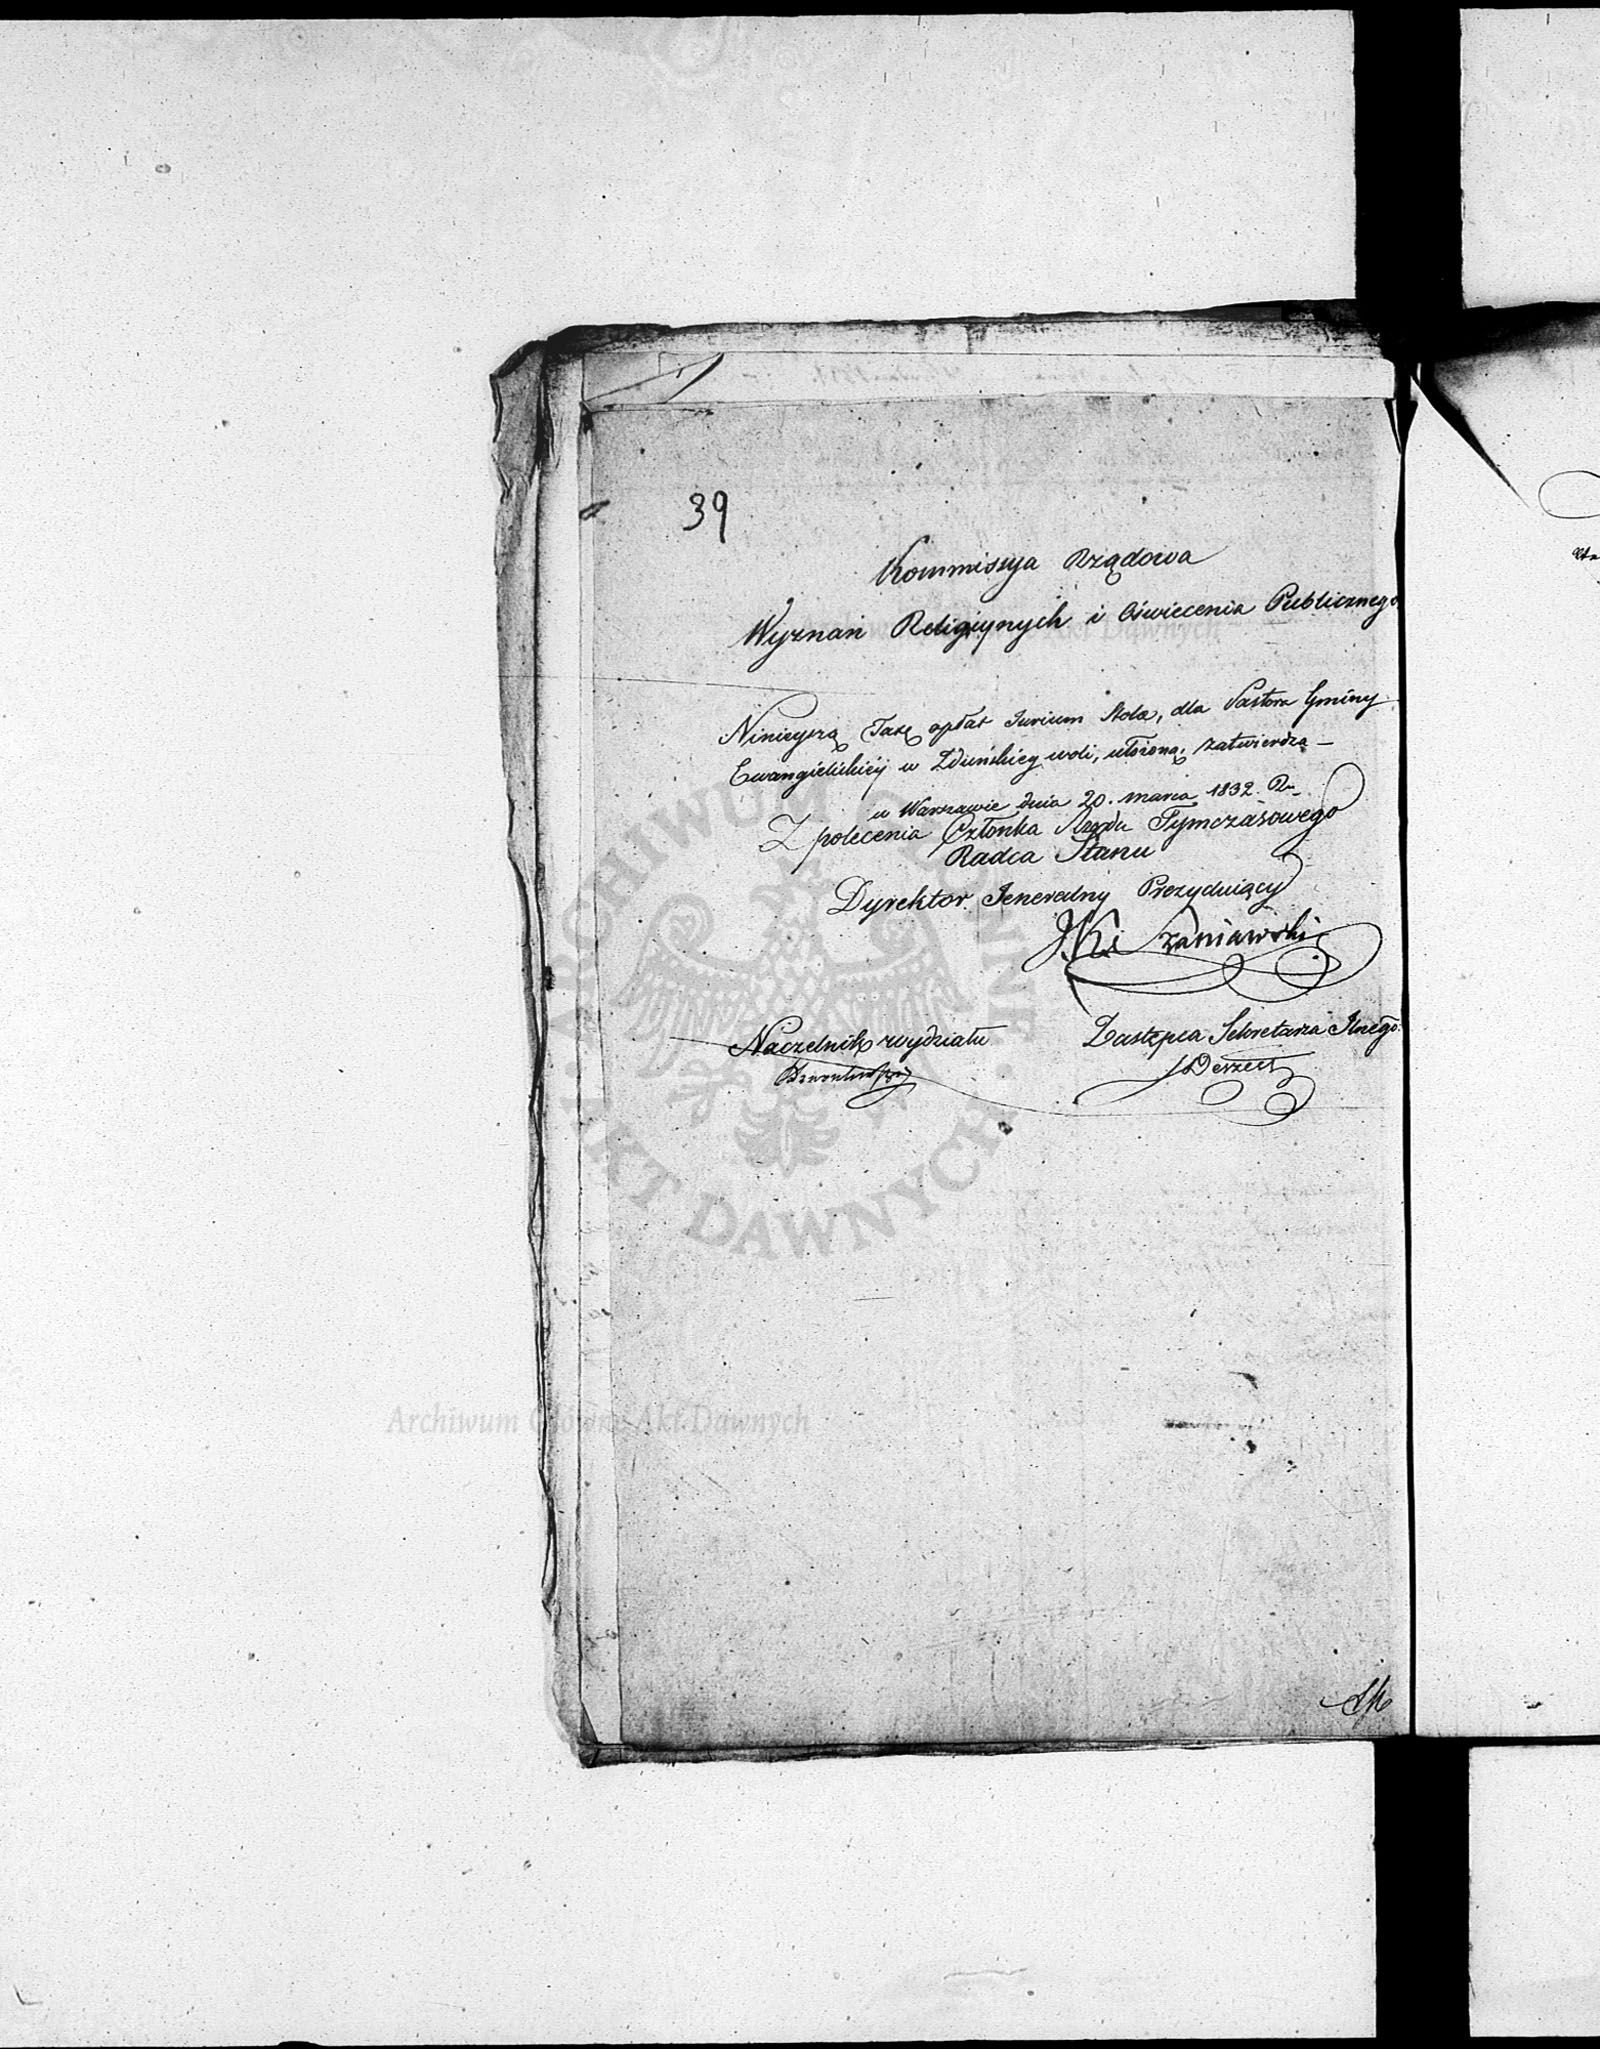 39
Kommissya Rządowa
Wyznań Religiynych i Oświecenia Publicznego
Ninieyszą Taxę opłat Jurium Stolæ, dla Pastora Gminy
Ewangielickiéy w Zduńskiey woli, ułożoną; zatwierdza –
w Warszawie dnia 20. marca 1832. R.
Z polecenia Członka Rządu Tymczasowego
Radca Stanu
Dyrektor Jeneralny Prezyduiący
Szaniawski
Naczelnik wydziału
Zastępca Sekretarza Jlnego.
ARCHIWUM GŁÓWNE AKT DAWNYCH
Archiwum Główne Akt Dawnych